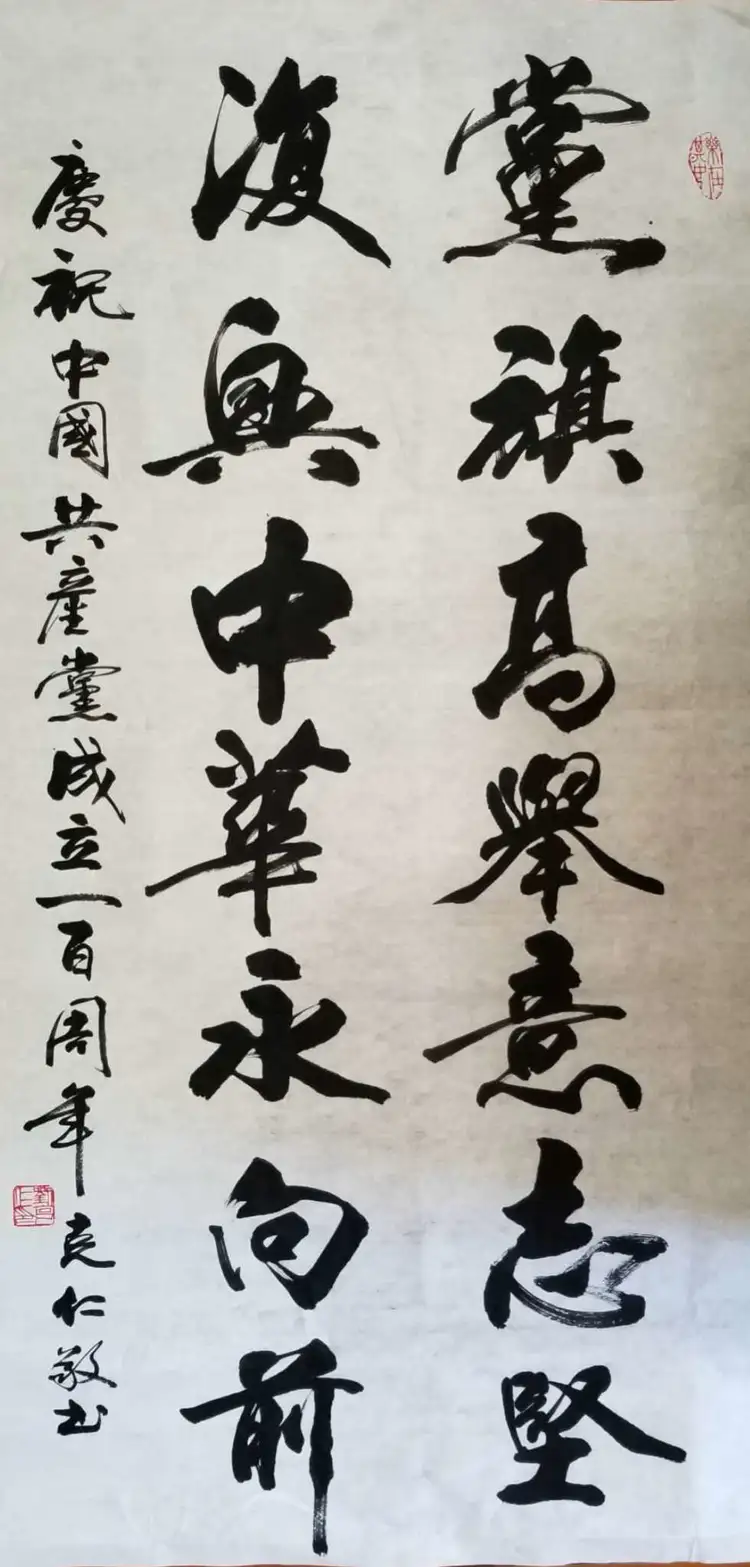 黨旗高舉意志堅
復興中華永向前
慶祝中國共產黨成立一百周年
克仁敬书